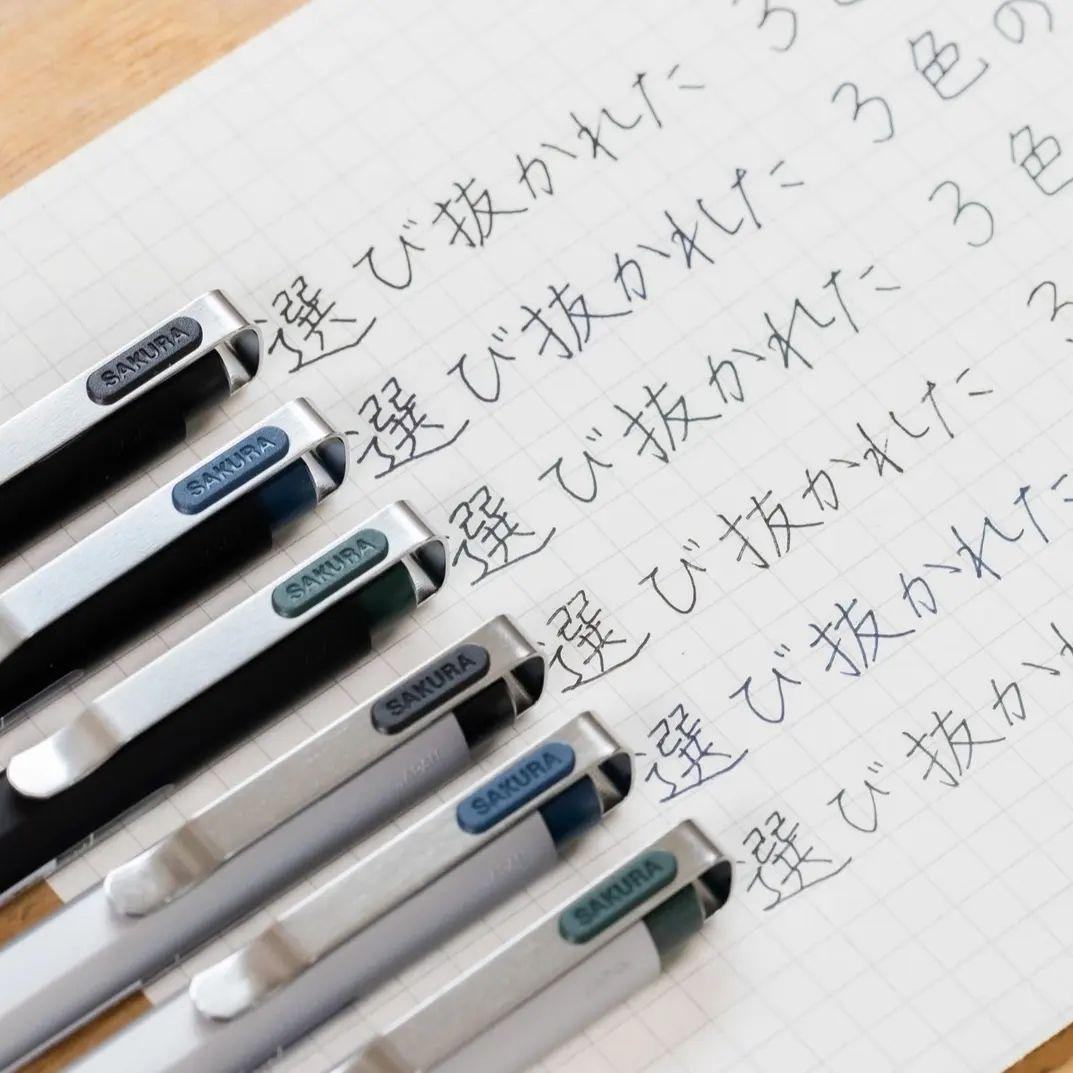 選び抜かれた 3
選び抜かれた 3色の
選び抜かれた 3色
選び抜かれた 3
選び抜かれた
選び抜か
SAKURA
SAKURA
SAKURA
SAKURA
SAKURA
SAKURA